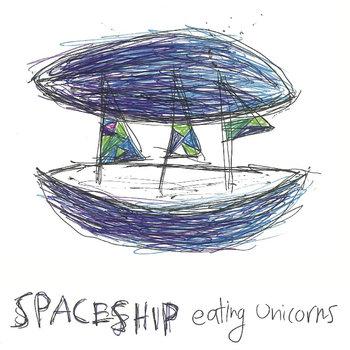 SPACESHIP eating Unicorns